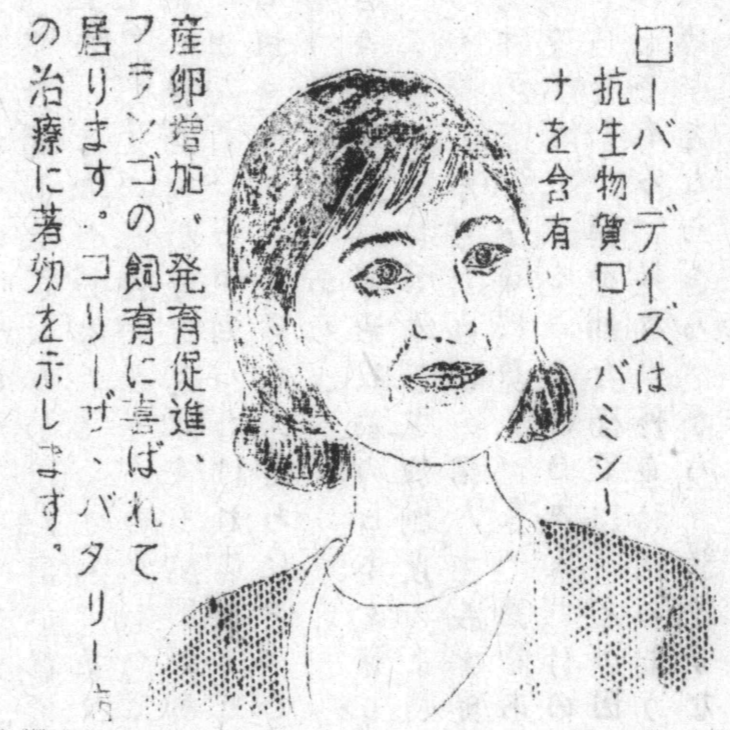 ローバーデイズは
抗生物質ローバミシー
ナを含有、
産卵増加、発育促進、
フランゴの飼育に喜ばれて
居ります。コリーザ、バタリー
の治療に著効を示します。